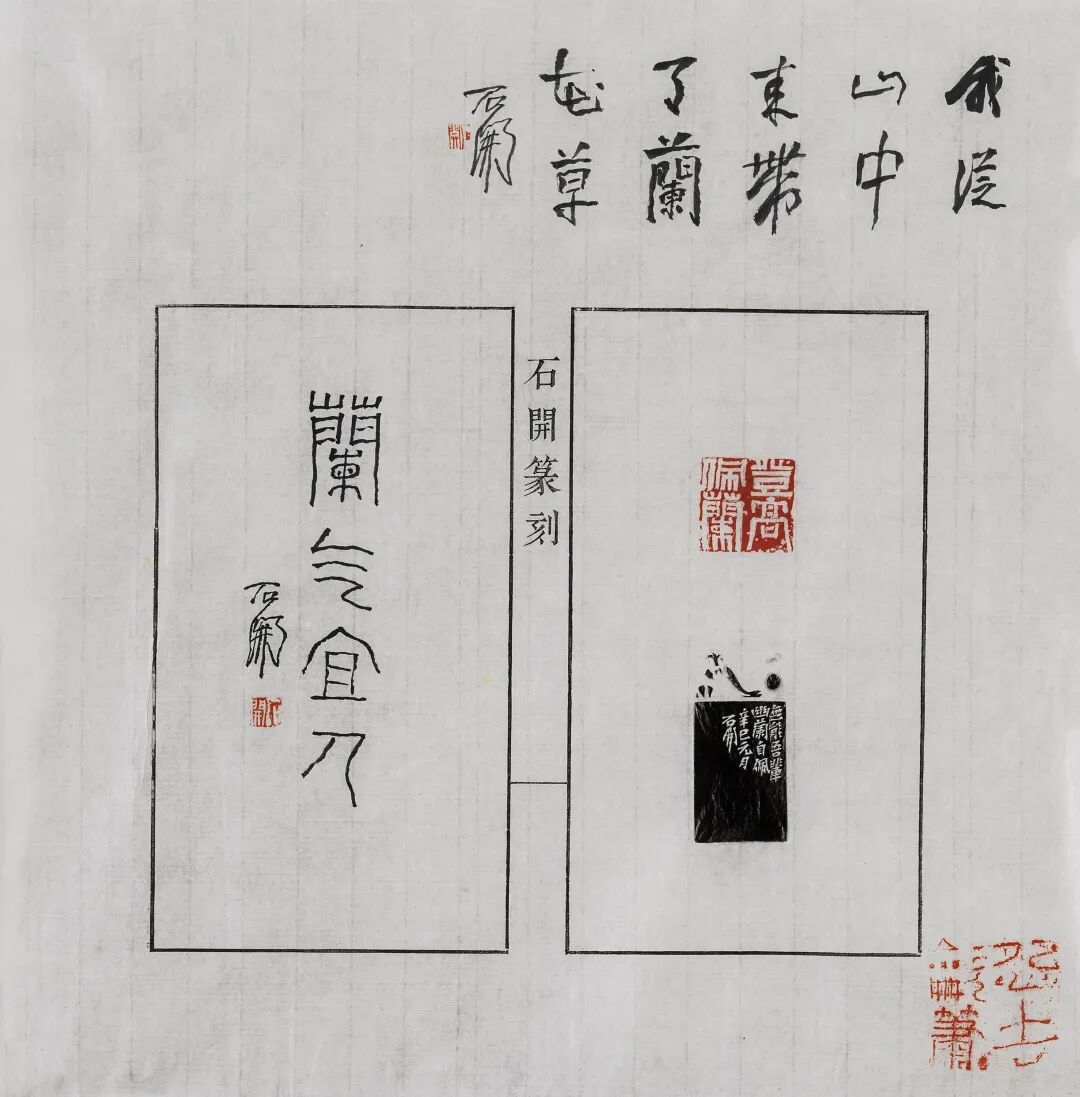 我從
山中
来帶
了蘭
花草
石開
石開
佩蘭
無能吾輩
幽蘭自佩
辛巳元月
石開
石開篆刻
蘭气宜人
石開
石開